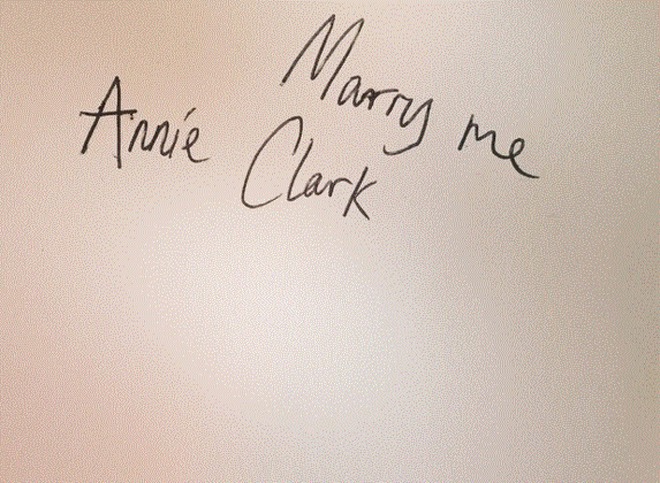 Marry me
Annie Clark